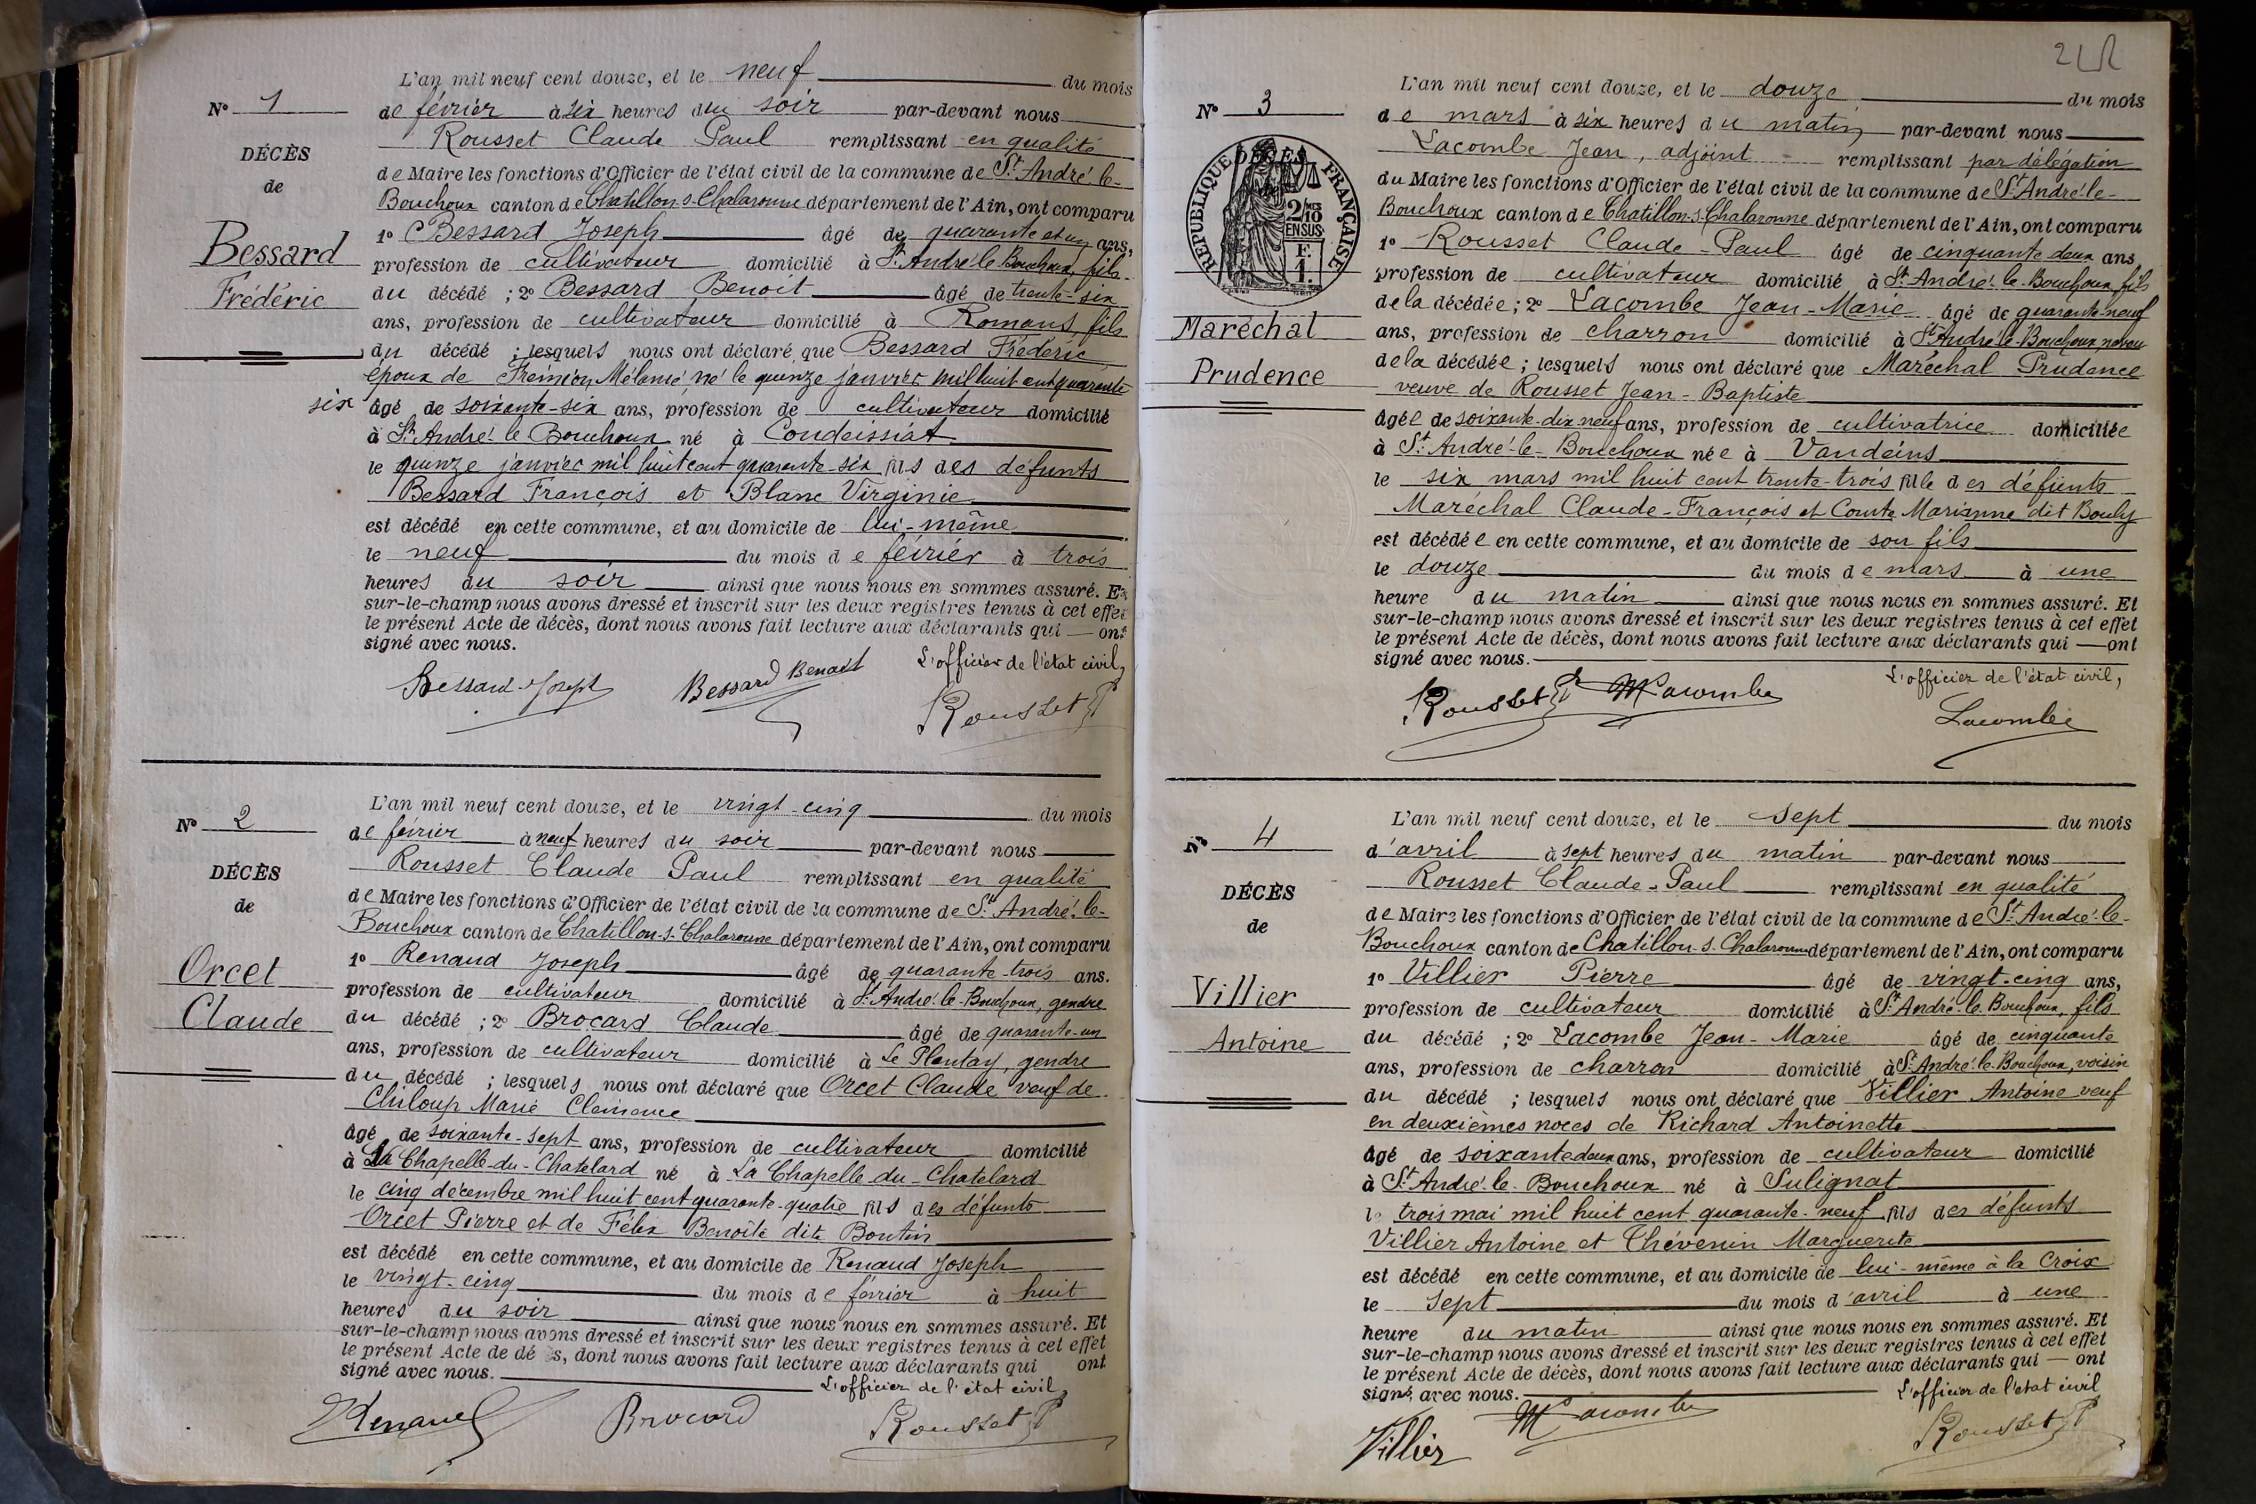 L'an mil neuf cent douze, et le neuf du mois
N° 1
de février à six heures du soir par-devant nous
Rousset Claude Paul remplissant en qualité
DÉCÈS
de Maire les fonctions d'Officier de l'état civil de la commune de St. André-le-
de
Bouchoux canton de Chatillon-s-Chalaronne département de l'Ain, ont comparu
Bessard
1° Bessard Joseph âgé de quarante et un ans,
profession de cultivateur domicilié à St. André le Bouchoux, fils
Frédéric
du décédé ; 2° Bessard Benoit âgé de trente-six
ans, profession de cultivateur domicilié à Romans, fils
du décédé ; lesquels nous ont déclaré que Bessard Frédéric
époux de Mélanie né le quinze janvier mil huit cent quarante
six âgé de soixante-six ans, profession de cultivateur domicilié
à St. André le Bouchoux né à Condeissiat
le quinze janvier mil huit cent quarante-six fils des défunts
Bessard François et Blanc Virginie
est décédé en cette commune, et au domicile de lui-même
le neuf du mois de février à trois
heures du soir ainsi que nous nous en sommes assuré. Et
sur-le-champ nous avons dressé et inscrit sur les deux registres tenus à cet effet
le présent Acte de décès, dont nous avons fait lecture aux déclarants qui — ont
signé avec nous.
L'officier de l'état civil,
Bessard Joseph Bessard Benoit Rousset P
L'an mil neuf cent douze, et le vingt-cinq du mois
N° 2
de février à neuf heures du soir par-devant nous
Rousset Claude Paul remplissant en qualité
DÉCÈS
de Maire les fonctions d'Officier de l'état civil de la commune de St. André-le-
de
Bouchoux canton de Chatillon-s-Chalaronne département de l'Ain, ont comparu
Orcet
1° Renaud Joseph âgé de quarante-trois ans.
profession de cultivateur domicilié à St. André-le-Bouchoux, gendre
Claude
du décédé ; 2° Brocard Claude âgé de quarante-un
ans, profession de cultivateur domicilié à Le Plantay, gendre
du décédé ; lesquels nous ont déclaré que Orcet Claude veuf de
Chiloup Marie Clémence
âgé de soixante-sept ans, profession de cultivateur domicilié
à La Chapelle-du-Chatelard né à La Chapelle-du-Chatelard
le cinq décembre mil huit cent quarante-quatre fils des défunts
Orcet Pierre et de Félix Benoîte dite Boutin
est décédé en cette commune, et au domicile de Renaud Joseph
le vingt-cinq du mois de février à huit
heures du soir ainsi que nous nous en sommes assuré. Et
sur-le-champ nous avons dressé et inscrit sur les deux registres tenus à cet effet
le présent Acte de dé s, dont nous avons fait lecture aux déclarants qui ont
signé avec nous.
L'officier de l'état civil,
Renaud Brocard Rousset P
L'an mil neuf cent douze, et le douze du mois
N° 3
de mars à six heures du matin par-devant nous
Lacombe Jean, adjoint remplissant par délégation
RÉPUBLIQUE FRANÇAISE
DÉCÈS
2/10 EN SUS
F. 1.
du Maire les fonctions d'Officier de l'état civil de la commune de St André-le-
Bouchoux canton de Chatillon-s-Chalaronne département de l'Ain, ont comparu
1° Rousset Claude-Paul âgé de cinquante deux ans,
profession de cultivateur domicilié à St. André-le-Bouchoux fils
de la décédée ; 2° Lacombe Jean-Marie âgé de quarante-neuf
Maréchal
ans, profession de charron domicilié à St André-le-Bouchoux, neveu
Prudence
de la décédée ; lesquels nous ont déclaré que Maréchal Prudence
veuve de Rousset Jean-Baptiste
âgée de soixante-dix neuf ans, profession de cultivatrice domiciliée
à St. André-le-Bouchoux née à Vandeins
le six mars mil huit cent trente-trois fille des défunts
Maréchal Claude-François et Comte Marianne dit Bouly
est décédée en cette commune, et au domicile de son fils
le douze du mois de mars à une
heure du matin ainsi que nous nous en sommes assuré. Et
sur-le-champ nous avons dressé et inscrit sur les deux registres tenus à cet effet
le présent Acte de décès, dont nous avons fait lecture aux déclarants qui — ont
signé avec nous.
L'officier de l'état civil,
Rousset P Lacombe
L'an mil neuf cent douze, et le sept du mois
N° 4
d'avril à sept heures du matin par-devant nous
Rousset Claude-Paul remplissant en qualité
DÉCÈS
de Maire les fonctions d'Officier de l'état civil de la commune de St. André-le-
de
Bouchoux canton de Chatillon-s-Chalaronne département de l'Ain, ont comparu
Villier
1° Villier Pierre âgé de vingt-cinq ans,
profession de cultivateur domicilié à St. André-le-Bouchoux, fils
Antoine
du décédé ; 2° Lacombe Jean-Marie âgé de cinquante
ans, profession de charron domicilié à St. André-le-Bouchoux, voisin
du décédé ; lesquels nous ont déclaré que Villier Antoine veuf
en deuxièmes noces de Richard Antoinette
âgé de soixante deux ans, profession de cultivateur domicilié
à St. André-le-Bouchoux né à Sulignat
le trois mai mil huit cent quarante-neuf fils des défunts
Villier Antoine et Thévenin Marguerite
est décédé en cette commune, et au domicile de lui-même à la Croix
le sept du mois d'avril à une
heure du matin ainsi que nous nous en sommes assuré. Et
sur-le-champ nous avons dressé et inscrit sur les deux registres tenus à cet effet
le présent Acte de décès, dont nous avons fait lecture aux déclarants qui — ont
signé avec nous.
L'officier de l'état civil
Villier Rousset P